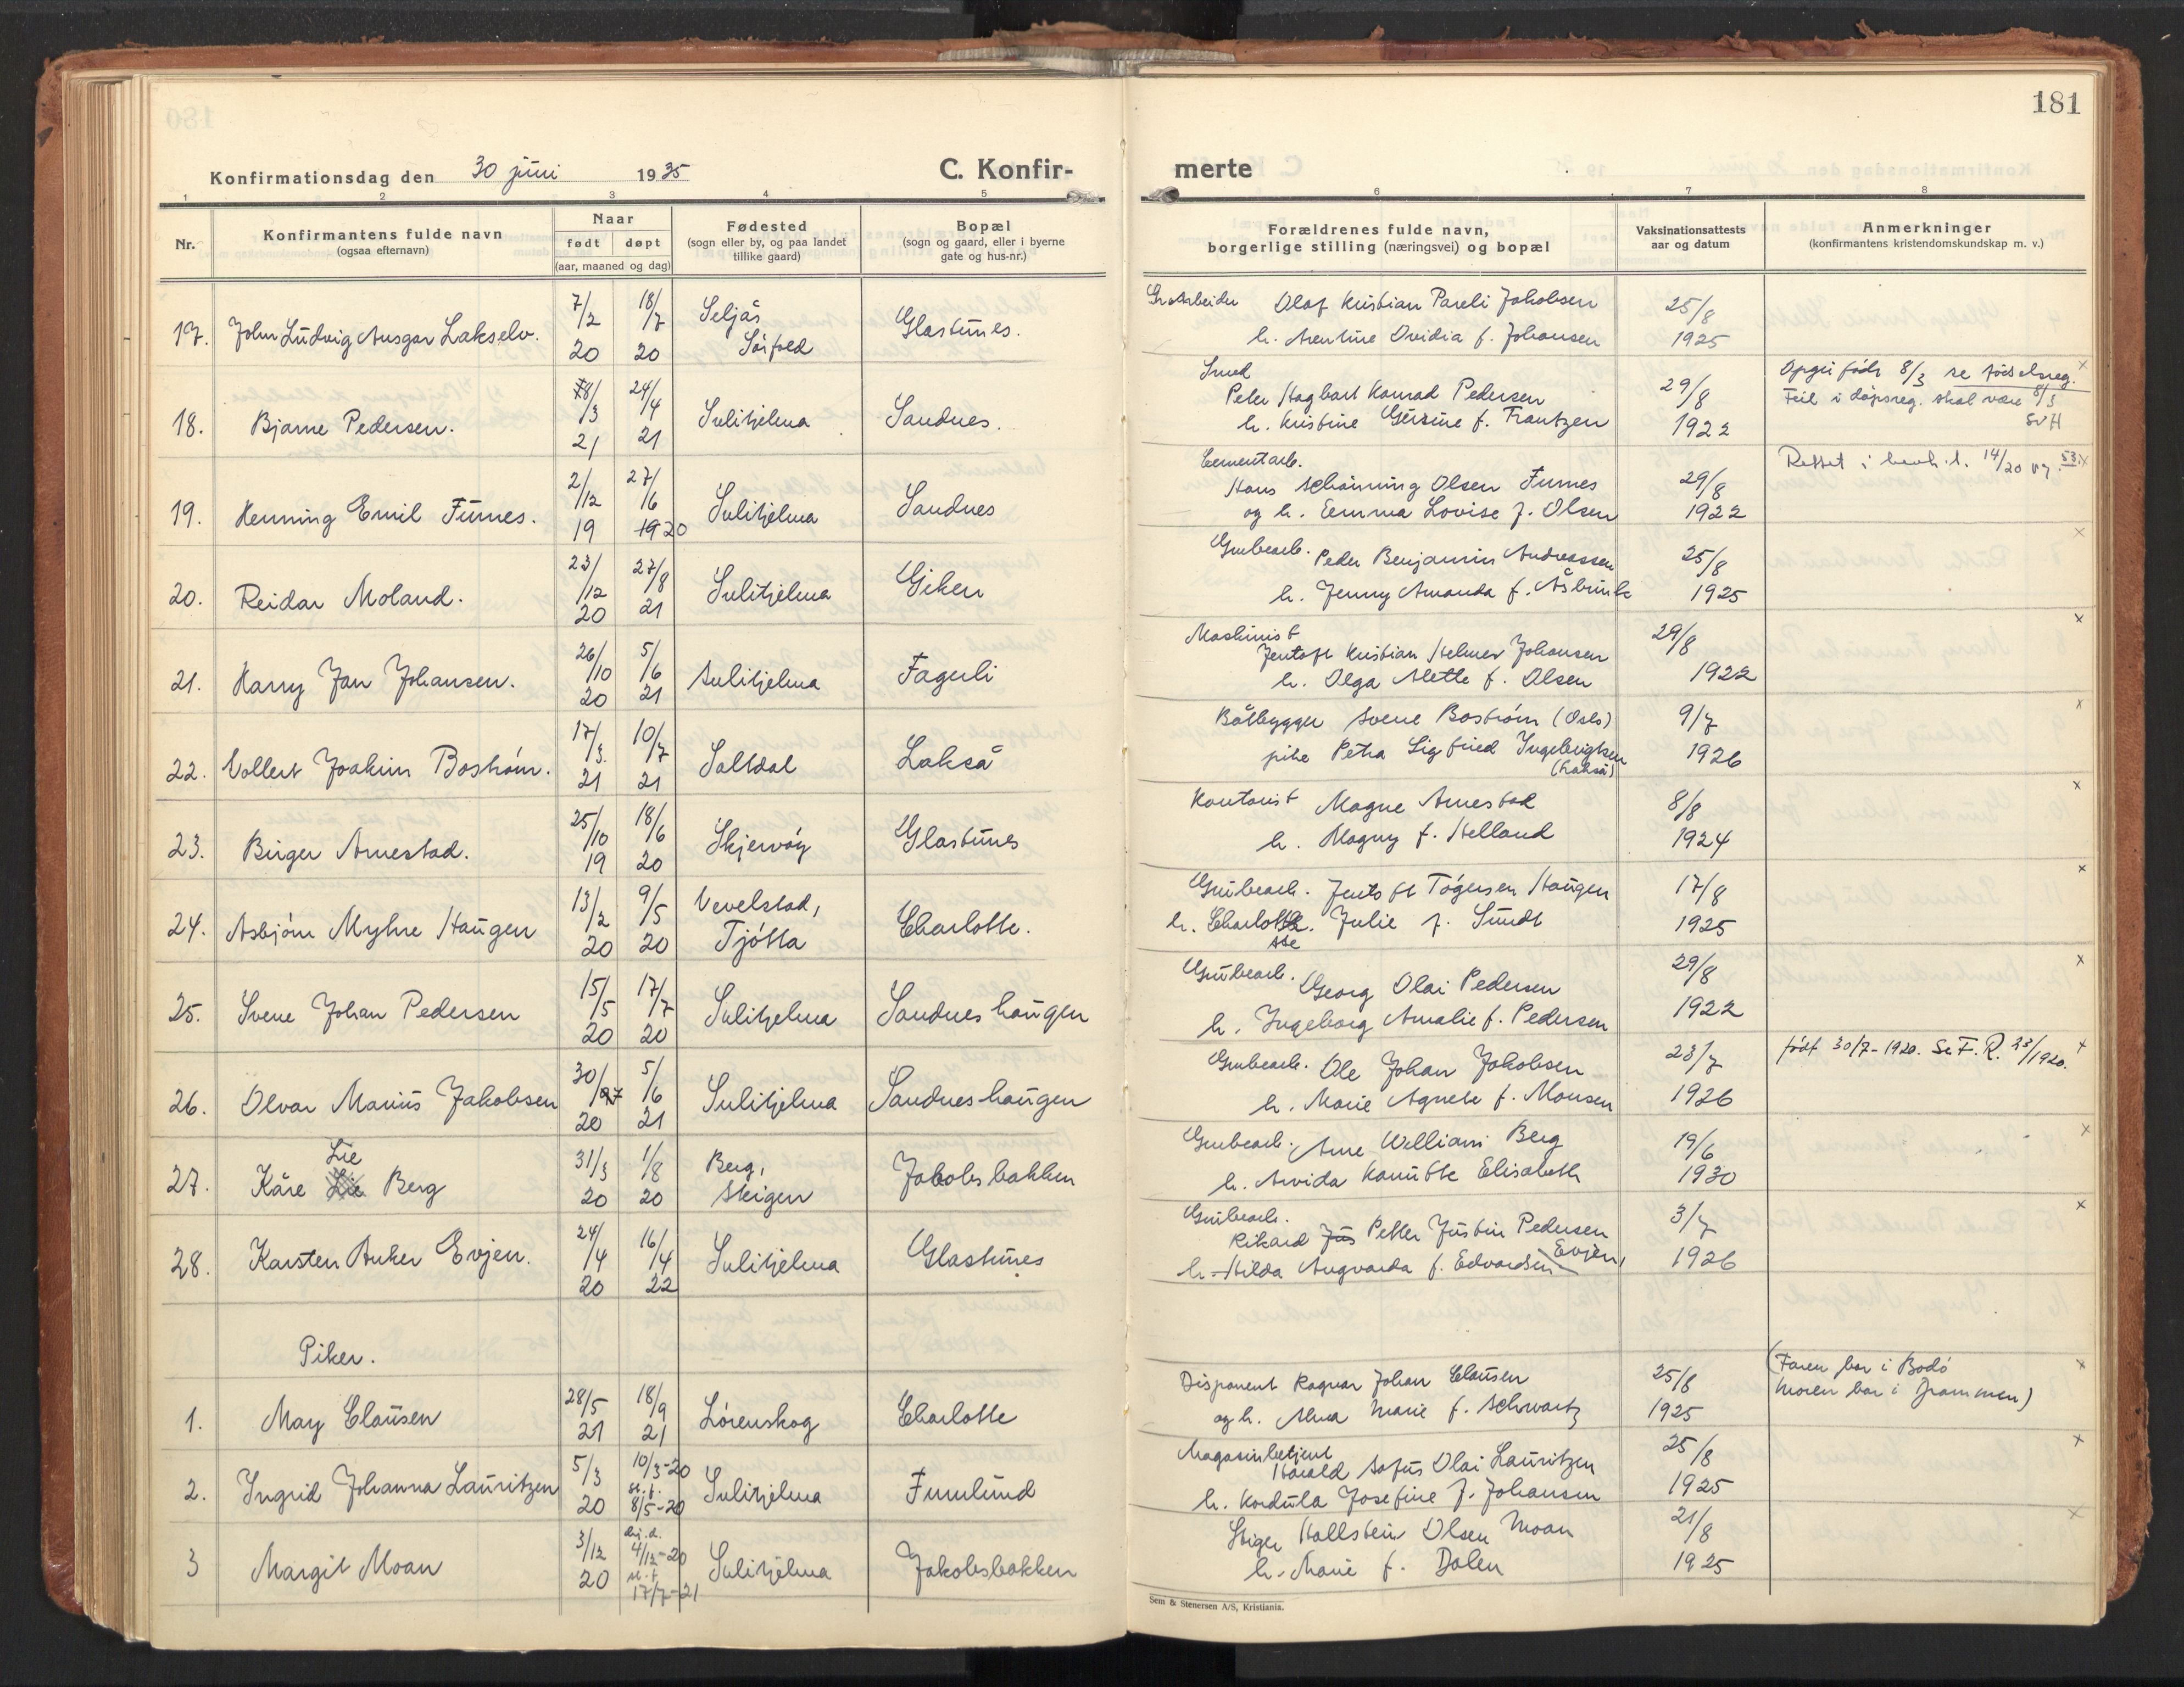 181
Konfirmationsdag den 30 juni 1935
C. Konfir-
merte
1 2 3 4 5 6 7 8
Nr.
Konfirmantens fulde navn
(ogsaa efternavn)
Naar
født døpt
(aar, maaned og dag)
Fødested
(sogn eller by, og paa landet
tillike gaard)
Bopæl
(sogn og gaard, eller i byerne
gate og hus-nr.)
Forældrenes fulde navn,
borgerlige stilling (næringsvei) og bopæl
Vaksinationsattests
aar og datum
Anmerkninger
(konfirmantens kristendomskundskap m. v.)
17. John Ludvig Ansgar Lakselv. 7/2 20 18/7 20 Seljås Sørfold Glastunes.
Olaf Kristian Pareli Jakobsen
h. Arentine Ovidia f. Johansen
25/8 1925
18. Bjarne Pedersen. 8/3 21 24/4 21 Sulitjelma Sandnes.
Smed
Peder Hagbart Konrad Pedersen
h. Kristine Geirine f. Frantzen
29/8 1922
Opgir født 8/3 se fødselsreg. x
Feil i døpsreg. skal være 8/3
SvH
19. Henning Emil Furnes. 2/12 19 27/6 1920 Sulitjelma Sandnes
Cementarb.
Hans Schønning Olsen Furnes
og h. Eemma Lovise f. Olsen
29/8 1922
Rettet i henh. t. 14/20 53. x
20. Reidar Moland. 23/12 20 27/8 21 Sulitjelma Giken
Grubearb. Peder Benjamin Andreassen
h. Jenny Amanda f. Åsbrink
25/8 1925
x
21. Harry Jan Johansen. 26/10 20 5/6 21 Sulitjelma Fagerli
Maskinist
Jentoft Kristian Helmer Johansen
h. Olga Mette f. Olsen
29/8 1922
x
22. Vollert Joakim Bostrøm. 17/3. 21 10/7 21 Saltdal Lakså
Båtbygger Svene Bostrøm (Oslo)
pike Petra Sigfried Ingebrigtsen
(Lakså)
9/7 1926
x
23. Birger Arnestad. 25/10 19 18/6 20 Skjervøy Glastunes
Kontorist Magne Arnestad
h. Magny f. Helland
8/8 1924
x
24. Asbjørn Myhre Haugen 13/2 20 9/5 20 Vevelstad, Tjøtta Charlotte.
Grubearb. Jentoft Tøgersen Haugen
h. Charlotte. Julie f. Sundt
17/8 1925
x
25. Svene Johan Pedersen 15/5 20 17/7 20 Sulitjelma Sandneshaugen
Grubearb. Georg Olai Pedersen
h. Ingeborg Amalie f. Pedersen
29/8 1922
x
26. Olvar Marius Jakobsen 30/7 20 5/6 21 Sulitjelma Sandneshaugen
Grubearb. Ole Johan Jakobsen
h. Marie Agnete f. Monsen
23/7 1926
født 30/7-1920. Se F. R. 23/1920. x
27. Kåre Lie Berg 31/3 20 1/8 20 Berg, Steigen Jakobsbakken
Grubearb. Arne William Berg
h. Arvida Kanutte Elisabeth
19/6 1930
x
28. Karsten Anker Evjen. 24/4 20 16/4 22 Sulitjelma Glastunes
Grubearb.
Rikard Jus Petter Justin Pedersen Evjen,
h. Hilda Angvarda f. Edvardsen
3/7 1926
x
Piker.
1. May Clausen 28/5 21 18/9 21 Lørenskog Charlotte
Disponent Ragnar Johan Clausen
og h. Alma Marie f. Schwartz
25/8 1925
(Faren bor i Bodø x
Moren bor i Drammen)
2. Ingrid Johanna Lauritzen 5/3 20 10/3-20 st.f. 8/5-20 Sulitjelma Furulund
Magasinbetjent
Harald Sofus Olai Lauritzen
h. Kordula Josefine f. Johansen
25/8 1925
x
3 Margit Moan 3/12 20 hj.d. 4/12-20 st.f. 17/7-21 Sulitjelma Jakobsbakken
Stiger Hallstein Olsen Moan
h. Marie f. Dalen
21/8 1925
x
Sem & Stenersen A/S, Kristiania.